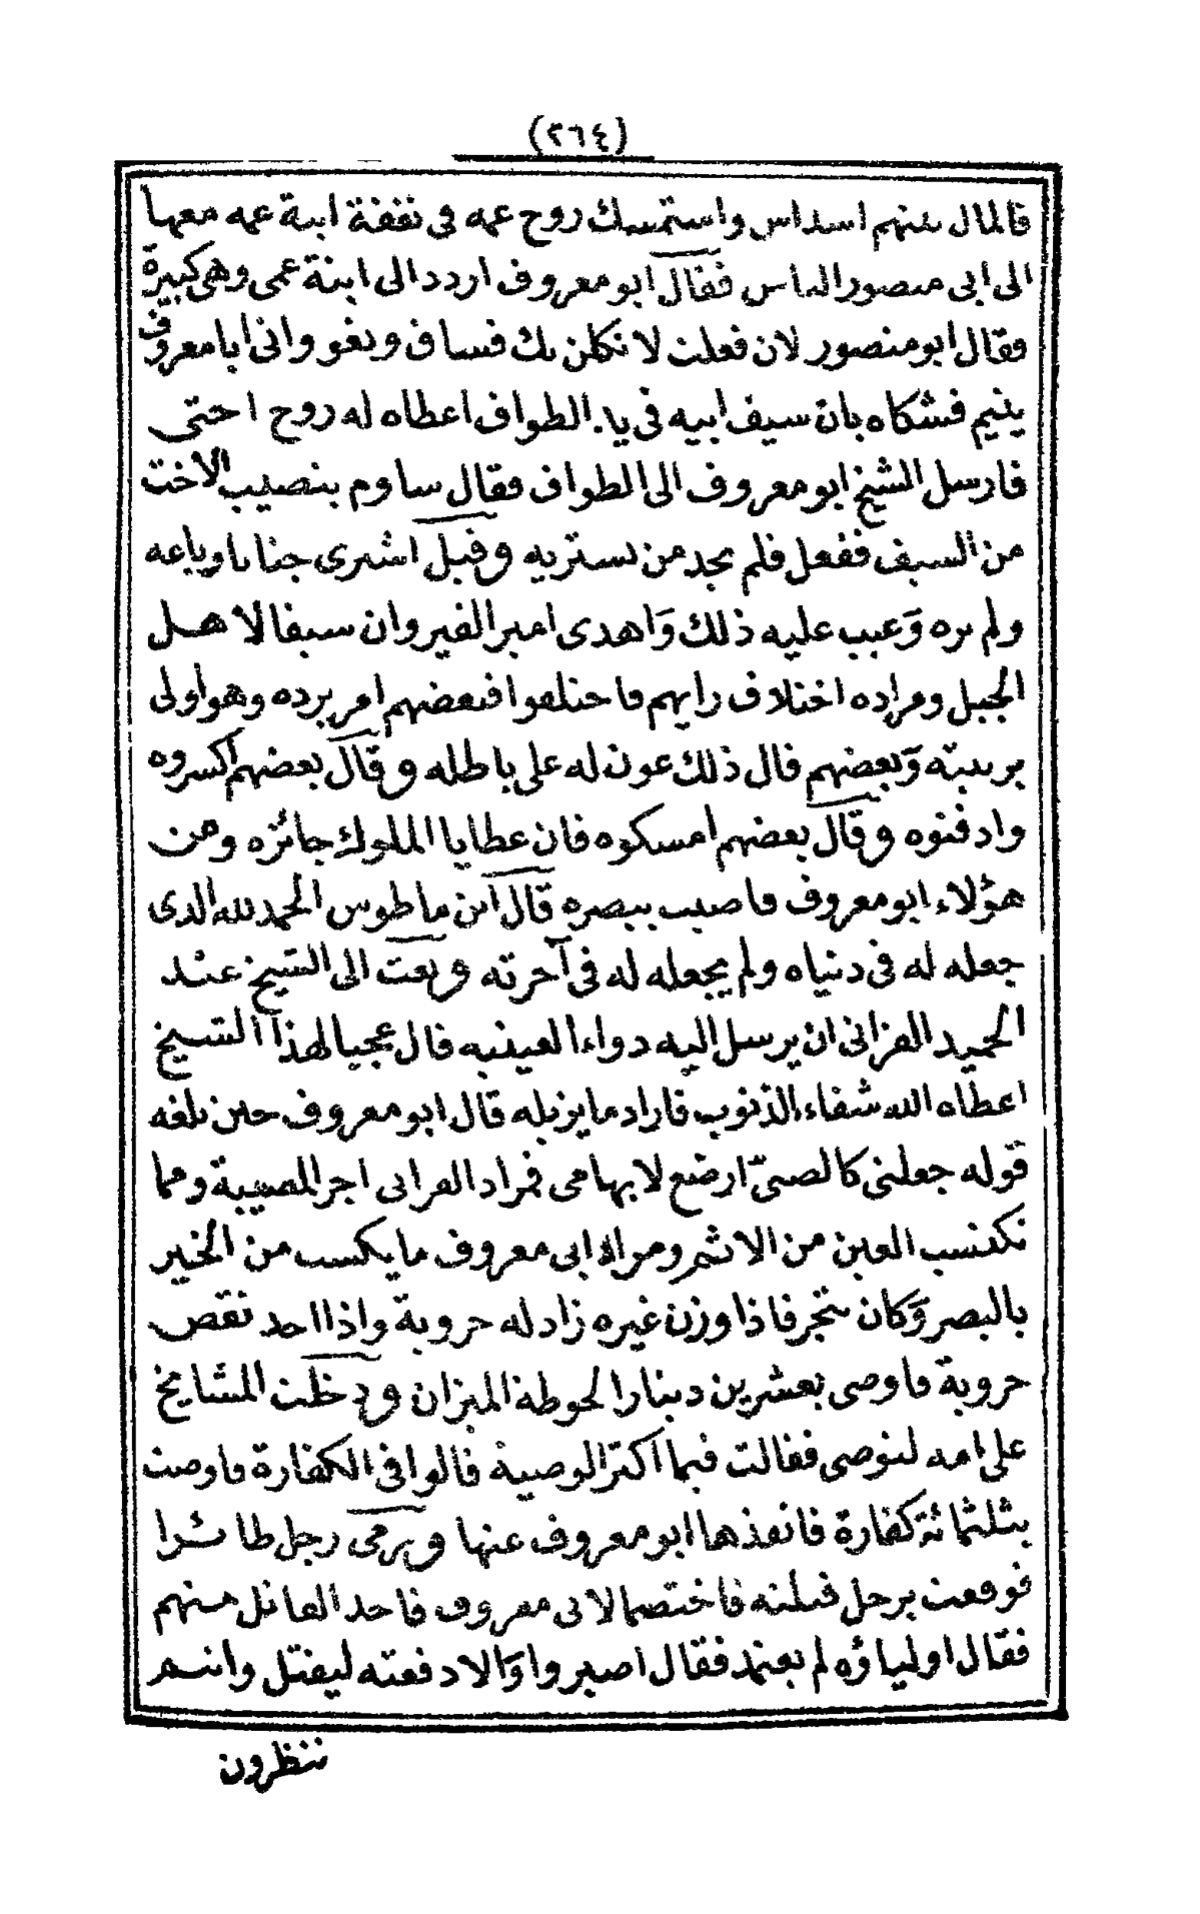 (٢٦٤)
فالمال بينهم اسداس واستمسك روح عمه فى نفقة ابنة عمه معها
الى ابى منصور الياس فقال ابو معروف اردد الى ابنة عمى وهى كبيرة
فقال ابو منصور لان فعلت لا نكلن بك فساق ويغو وانى ابا معروف
يتيم فشكاه بان سيف ابيه فى يد الطواف اعطاه له روح اختى
فارسل الشيخ ابو معروف الى الطواف فقال ساوم بنصيب الاخت
من السيف ففعل فلم يجد من يستريه وقيل اشترى جنانا وباعه
ولم يره وعيب عليه ذلك واهدى امير القيروان سيفا لاهل
الجبل ومراده اختلاف رايهم فاختلفوا فبعضهم امر برده وهو اولى
بريبته وبعضهم قال ذلك عون له على باطله وقال بعضهم اكسروه
وادفنوه وقال بعضهم امسكوه فان عطايا الملوك جائزه ومن
هؤلاء ابو معروف فاصيب ببصره قال ابن ماطوس الحمد لله الذى
جعله له فى دنياه ولم يجعله له فى آخرته وبعث الى الشيخ عبد
الحميد الفزانى ان يرسل اليه دواء العينيه قال عجبا لهذا الشيخ
اعطاه الله شفاء الذنوب فاراد ما يزيله قال ابو معروف حين بلغه
قوله جعلنى كالصبىّ ارضع لابهامى فمراد الفزانى اجر المصيبة ومما
تكتسب العين من الاثم ومراد ابى معروف ما يكسب من الخير
بالبصر وكان يتجر فاذا وزن غيره زاد له خروبة واذا اخد نقص
خروبة فاوصى بعشرين دينارا لحوطة الميزان ودخلت المشايخ
على امه لتوصى فقالت فيما اكثر الوصية قالوا فى الكفارة فاوصت
بثلثمائة كفارة فانفذها ابو معروف عنها ورمى رجل طائرا
فوقعت برجل فقتلته فاختصما لابى معروف فاخد القاتل منهم
فقال اولياؤه لم يعتمد فقال اصبروا والا دفعته ليقتل وانتم
تنظرون